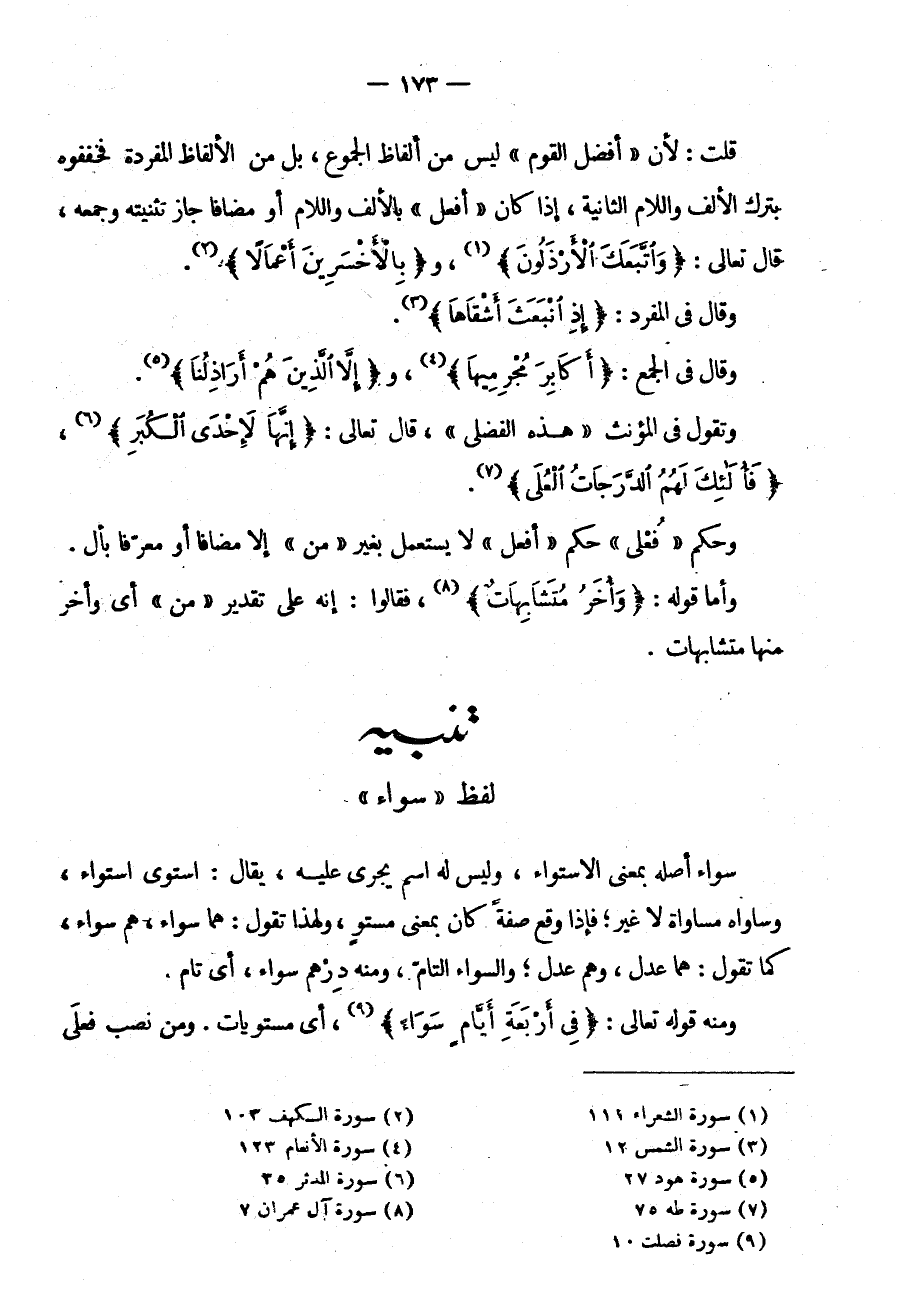 — ١٧٣ —
قلت : لأن « أفضل القوم » ليس من ألفاظ الجموع ، بل من الألفاظ المفردة فخففوه
بترك الألف واللام الثانية ، إذا كان « أفعل » بالألف واللام أو مضافا جاز تثنيته وجمعه ،
قال تعالى : ﴿ وَٱتَّبَعَكَ ٱلْأَرْذَلُونَ ﴾ (١) ، و ﴿ بِالْأَخْسَرِينَ أَعْمَالًا ﴾ (٢).
وقال فى المفرد : ﴿ إِذِ ٱنْبَعَثَ أَشْقَاهَا ﴾ (٣).
وقال فى الجمع : ﴿ أَكَابِرَ مُجْرِمِيهَا ﴾ (٤) ، و ﴿ إِلَّا ٱلَّذِينَ هُمْ أَرَاذِلُنَا ﴾ (٥).
وتقول فى المؤنث « هذه الفضلى » ، قال تعالى : ﴿ إِنَّهَا لَإِحْدَى ٱلْكُبَرِ ﴾ (٦) ،
﴿ فَأُولَٰئِكَ لَهُمُ ٱلدَّرَجَاتُ ٱلْعُلَى ﴾ (٧).
وحكم « فُعْلى » حكم « أفعل » لا يستعمل بغير « من » إلا مضافا أو معرّفا بأل .
وأما قوله : ﴿ وَأُخَرُ مُتَشَابِهَاتٌ ﴾ (٨) ، فقالوا : إنه على تقدير « من » أى وأخر
منها متشابهات .
تنبيه
لفظ « سواء »
سواء أصله بمعنى الاستواء ، وليس له اسم يجرى عليه ، يقال : استوى استواء ،
وساواه مساواة لا غير ؛ فإذا وقع صفةً كان بمعنى مستوٍ ، ولهذا تقول : هما سواء ، هم سواء ،
كما تقول : هما عدل ، وهم عدل ؛ والسواء التامّ ، ومنه دِرْهم سواء ، أى تام .
ومنه قوله تعالى : ﴿ فِى أَرْبَعَةِ أَيَّامٍ سَوَاءً ﴾ (٩) ، أى مستويات . ومن نصب فعلَى
(١) سورة الشعراء ١١١ (٢) سورة الكهف ١٠٣
(٣) سورة الشمس ١٢ (٤) سورة الأنعام ١٢٣
(٥) سورة هود ٢٧ (٦) سورة المدثر ٣٥
(٧) سورة طه ٧٥ (٨) سورة آل عمران ٧
(٩) سورة فصلت ١٠